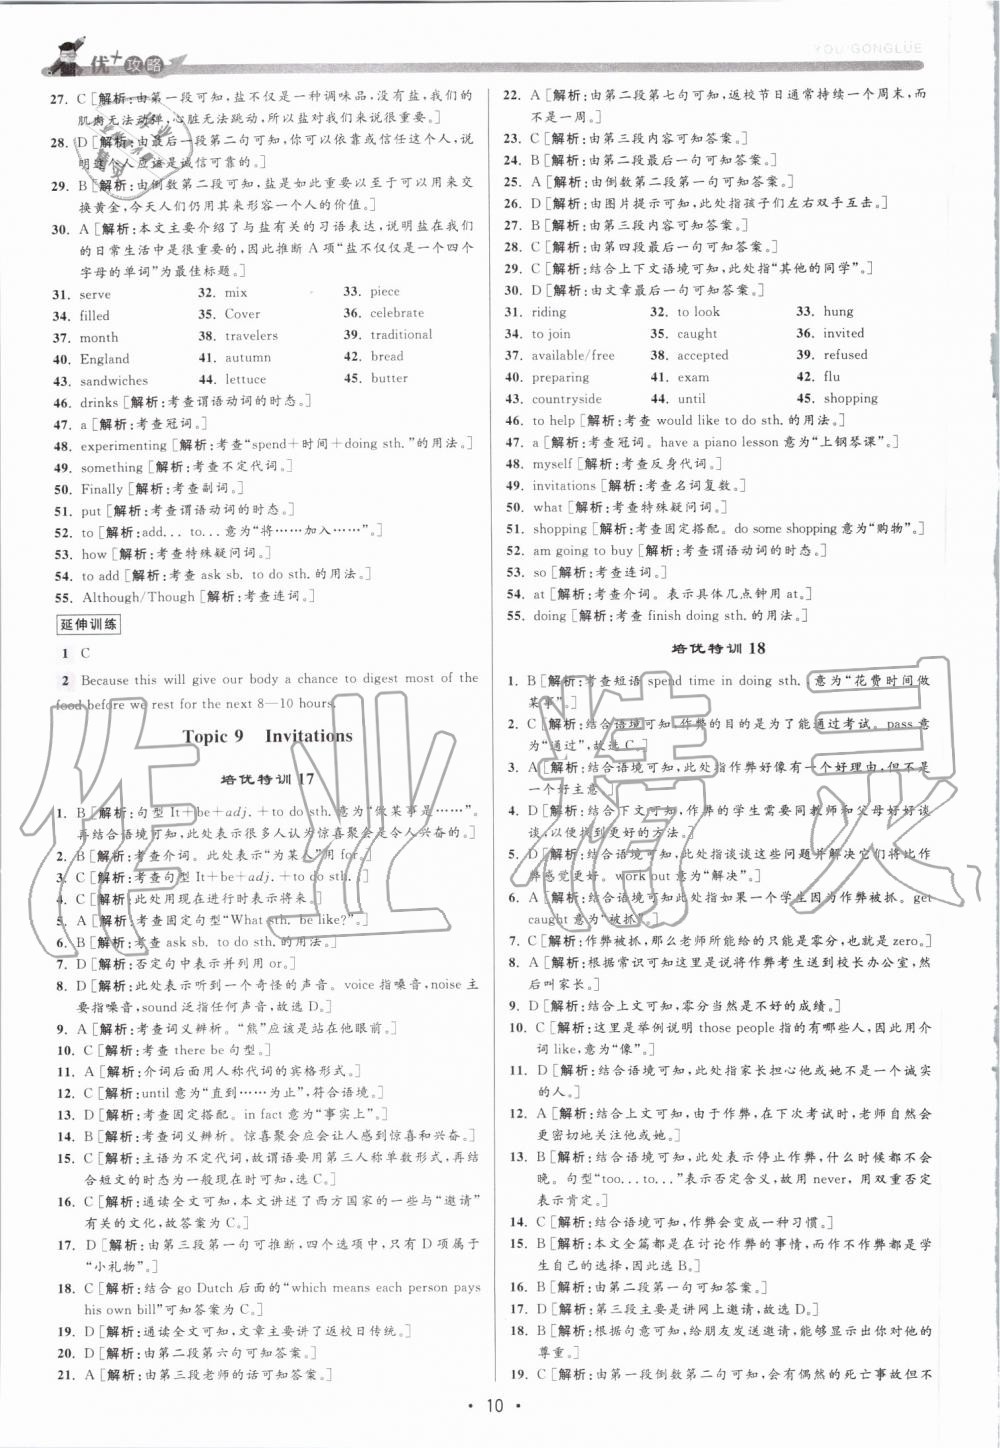 优+攻略
YOU+GONGLÜE
27. C [解析:由第一段可知,盐不仅是一种调味品,没有盐,我们的
肌肉无法动弹,心脏无法跳动,所以盐对我们来说很重要。]
28. D [解析:由最后一段第二句可知,你可以依靠或信任这个人,说
明这个人应该是诚信可靠的。]
29. B [解析:由倒数第二段可知,盐是如此重要以至于可以用来交
换黄金,今天人们仍用其来形容一个人的价值。]
30. A [解析:本文主要介绍了与盐有关的习语表达,说明盐在我们
的日常生活中是很重要的,因此推断 A项“盐不仅仅是一个四个
字母的单词”为最佳标题。]
31. serve 32. mix 33. piece
34. filled 35. Cover 36. celebrate
37. month 38. travelers 39. traditional
40. England 41. autumn 42. bread
43. sandwiches 44. lettuce 45. butter
46. drinks [解析:考查谓语动词的时态。]
47. a [解析:考查冠词。]
48. experimenting [解析:考查“spend+时间+doing sth.”的用法。]
49. something [解析:考查不定代词。]
50. Finally [解析:考查副词。]
51. put [解析:考查谓语动词的时态。]
52. to [解析:add... to...意为“将……加入……”。]
53. how [解析:考查特殊疑问词。]
54. to add [解析:考查 ask sb. to do sth.的用法。]
55. Although/Though [解析:考查连词。]
延伸训练
1 C
2 Because this will give our body a chance to digest most of the
food before we rest for the next 8—10 hours.
Topic 9 Invitations
培优特训 17
1. B [解析:句型 It+be+adj. +to do sth.意为“做某事是……”。
再结合语境可知,此处表示很多人认为惊喜聚会是令人兴奋的。]
2. B [解析:考查介词。此处表示“为某人”用 for。]
3. C [解析:考查句型 It+be+adj. +to do sth.]
4. C [解析:此处用现在进行时表示将来。]
5. A [解析:考查固定句型“What sth. be like?”。]
6. B [解析:考查 ask sb. to do sth.的用法。]
7. D [解析:否定句中表示并列用 or。]
8. D [解析:此处表示听到一个奇怪的声音。voice 指嗓音,noise 主
要指噪音,sound 泛指任何声音,故选 D。]
9. A [解析:考查词义辨析。“熊”应该是站在他眼前。]
10. C [解析:考查 there be 句型。]
11. A [解析:介词后面用人称代词的宾格形式。]
12. C [解析:until 意为“直到……为止”,符合语境。]
13. D [解析:考查固定搭配。in fact 意为“事实上”。]
14. B [解析:考查词义辨析。惊喜聚会应会让人感到惊喜和兴奋。]
15. C [解析:主语为不定代词,故谓语要用第三人称单数形式,再结
合短文的时态为一般现在时可知,选 C。]
16. C [解析:通读全文可知,本文讲述了西方国家的一些与“邀请”
有关的文化,故答案为 C。]
17. D [解析:由第三段第一句可推断,四个选项中,只有 D 项属于
“小礼物”。]
18. C [解析:结合 go Dutch 后面的“which means each person pays
his own bill”可知答案为 C。]
19. D [解析:通读全文可知,文章主要讲述了返校日传统。]
20. D [解析:由第二段第六句可知答案。]
21. A [解析:由第三段老师的话可知答案。]
22. A [解析:由第二段第七句可知,返校节日通常持续一个周末,而
不是一周。]
23. C [解析:由第三段内容可知答案。]
24. B [解析:由第二段最后一句可知答案。]
25. A [解析:由倒数第二段第一句可知答案。]
26. D [解析:由图片提示可知,此处指孩子们左右双手互击。]
27. B [解析:由第三段内容可知答案。]
28. C [解析:由第四段最后一句可知答案。]
29. C [解析:结合上下文语境可知,此处指“其他的同学”。]
30. D [解析:由文章最后一句可知答案。]
31. riding 32. to look 33. hung
34. to join 35. caught 36. invited
37. available/free 38. accepted 39. refused
40. preparing 41. exam 42. flu
43. countryside 44. until 45. shopping
46. to help [解析:考查 would like to do sth.的用法。]
47. a [解析:考查冠词。have a piano lesson 意为“上钢琴课”。]
48. myself [解析:考查反身代词。]
49. invitations [解析:考查名词复数。]
50. what [解析:考查特殊疑问词。]
51. shopping [解析:考查固定搭配。do some shopping 意为“购物”。]
52. am going to buy [解析:考查谓语动词的时态。]
53. so [解析:考查连词。]
54. at [解析:考查介词。表示具体几点钟用 at。]
55. doing [解析:考查 finish doing sth.的用法。]
培优特训 18
1. B [解析:考查短语 spend time in doing sth.,意为“花费时间做
某事”。]
2. C [解析:结合语境可知,作弊的目的是为了能通过考试。pass 意
为“通过”,故选 C。]
3. A [解析:结合语境可知,此处指作弊好像有一个好理由,但不是
一个好主意。]
4. D [解析:结合下文可知,作弊的学生需要同教师和父母好好谈
谈,以便找到更好的方法。]
5. D [解析:结合语境可知,此处指谈谈这些问题并解决它们将比作
弊感觉更好。work out 意为“解决”。]
6. A [解析:结合语境可知此处指如果一个学生作弊被抓。get
caught 意为“被抓”。]
7. C [解析:作弊被抓,那么老师所能给的只能是零分,也就是 zero。]
8. A [解析:根据常识可知这里是说将作弊考生送到校长办公室,然
后叫家长。]
9. D [解析:结合上文可知,零分当然是不好的成绩。]
10. C [解析:这里是举例说明 those people 指的有哪些人,因此用介
词 like,意为“像”。]
11. D [解析:结合语境可知,此处指家长担心他或她不是一个诚实
的人。]
12. A [解析:结合上文可知,由于作弊,在下次考试时,老师自然会
更密切地关注他或她。]
13. B [解析:结合语境可知,此处表示停止作弊,什么时候都不会
晚。句型“too... to...”表示否定含义,故用 never,用双重否定
表示肯定。]
14. C [解析:结合语境可知,作弊会变成一种习惯。]
15. B [解析:本文全篇都是在讨论作弊的事情,而作不作弊是学
生自己的选择,因此选 B。]
16. B [解析:由第二段第一句可知答案。]
17. D [解析:第三段主要是讲网上邀请,故选 D。]
18. B [解析:根据句意可知,给朋友发送邀请,能够显示出你对他的
尊重。]
19. C [解析:由第一段倒数第二句可知,会有偶然的死亡事故但不
· 10 ·
作业精灵